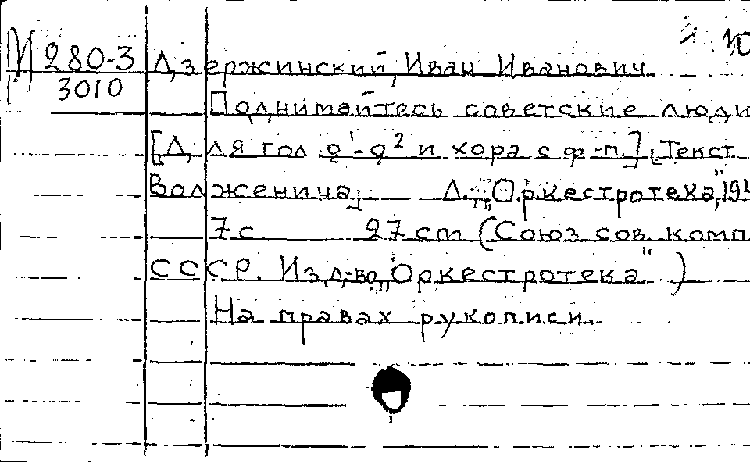 М 280-3 Дзержинский, Иван Иванович
3010
Поднимайтесь советские люди
[Для гол g¹-g² и хора с ф-п.] Текст
Волженина Л., „Оркестротека",
7 с 27 cm (Союз сов. комп
СССР. Изд-во „Оркестротека")
На правах рукописи.